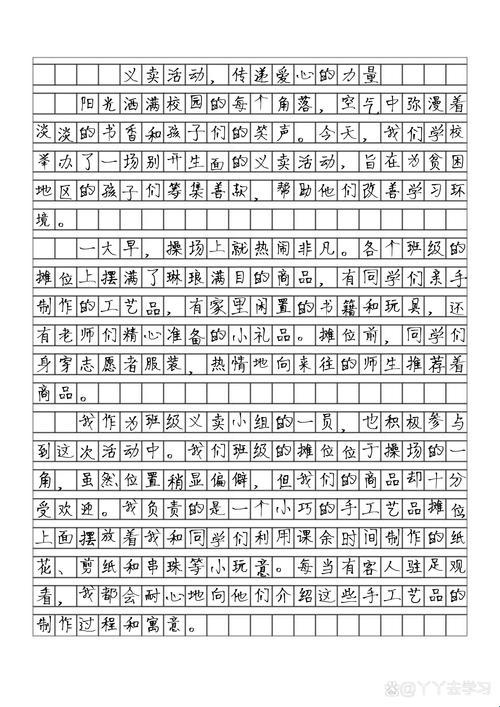 义卖活动，传递爱心的力量
阳光洒满校园的每个角落，空气中弥漫着
淡淡的书香和孩子们的笑声。今天，我们学校
举办了一场别开生面的义卖活动，旨在为贫困
地区的孩子们筹集善款，帮助他们改善学习环
境。
一大早，操场上就热闹非凡。各个班级的
摊位上摆满了琳琅满目的商品，有同学们亲手
制作的工艺品，有家里闲置的书籍和玩具，还
有老师们精心准备的小礼品。摊位前，同学们
身穿志愿者服装，热情地向来往的师生推荐着
商品。
我作为班级义卖小组的一员，也积极参与
到这次活动中。我们班级的摊位位于操场的一
角，虽然位置稍显偏僻，但我们的商品却十分
受欢迎。我负责的是一个小巧的手工艺品摊位
上面摆放着我和同学们利用课余时间制作的纸
花、剪纸和串珠等小玩意。每当有客人驻足观
看，我都会耐心地向他们介绍这些手工艺品的
制作过程和寓意。
@丫丫去学习